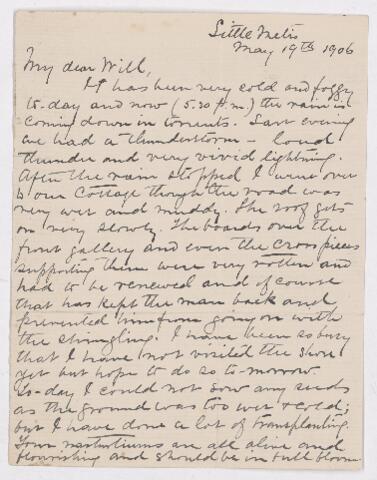 Little Metis
May 19th 1906
My dear Will,
It has been very cold and foggy
to-day and now (5.30 p.m.) the rain is
coming down in torrents. Last evening
we had a thunderstorm - loud
thunder and very vivid lightning.
After the rain stopped I went over
to our cottage though the road was
very wet and muddy. The roof gets
on very slowly. The boards over the
front gallery and even the cross pieces
supporting them were very rotten and
had to be renewed and of course
that has kept the man back and
prevented him from going on with
the shingling. I have been so busy
that I have not visited the shore
yet but hope to do so to-morrow.
To-day I could not sow any seeds
as the ground was too wet & cold;
but I have done a lot of transplanting.
Your nasturtiums are all alive and
flourishing and should be in full bloom